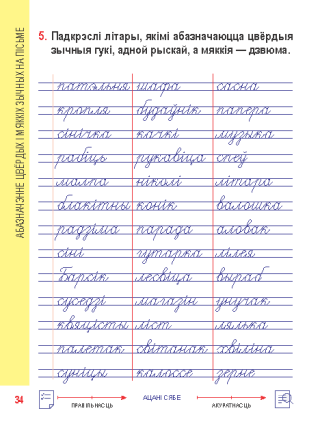 АБАЗНАЧЭННЕ ЦВЁРДЫХ І МЯККІХ ЗЫЧНЫХ НА ПІСЬМЕ
5. Падкрэслі літары, якімі абазначаюцца цвёрдыя
зычныя гукі, адной рыскай, а мяккія — дзвюма.
патэльня шафа сасна
кропля будаўнік папера
сінічка качкі музыка
рабіць рукавіца спеў
малпа ніколі літара
блакітны конік валошка
радзіма парада аловак
сіні гутарка лілея
Барсік лесвіца выраб
суседзі магазін унучак
квяцісты ліст лялька
палетак світанак хвіліна
суніцы калоссе зерне
34 ПРАВІЛЬНАСЦЬ АЦАНІ СЯБЕ АКУРАТНАСЦЬ